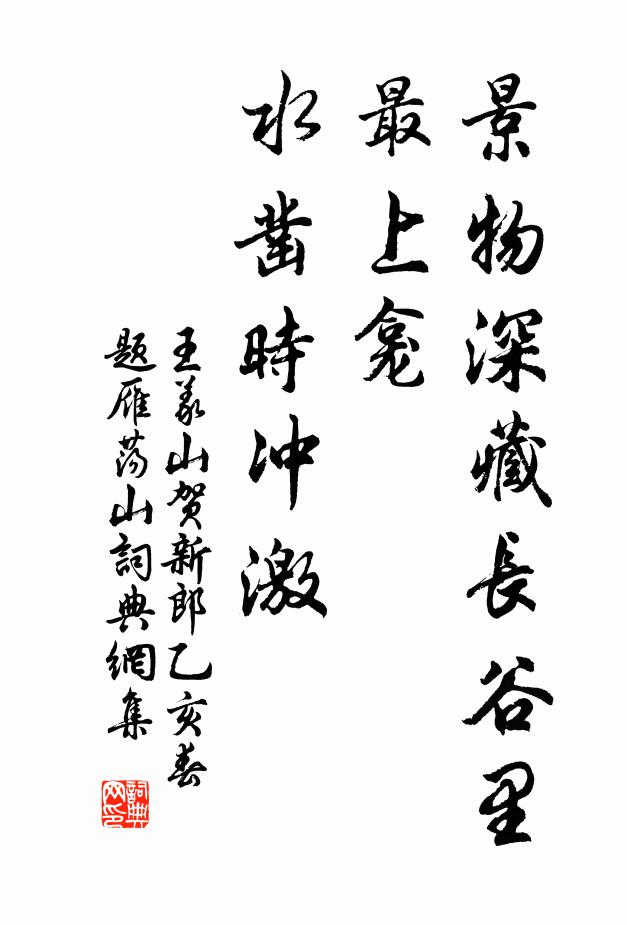 景物深藏長谷里
最上龛
水凿時冲激
王義山贺新郎乙亥春
题雁荡山詞典網集
詞典网印